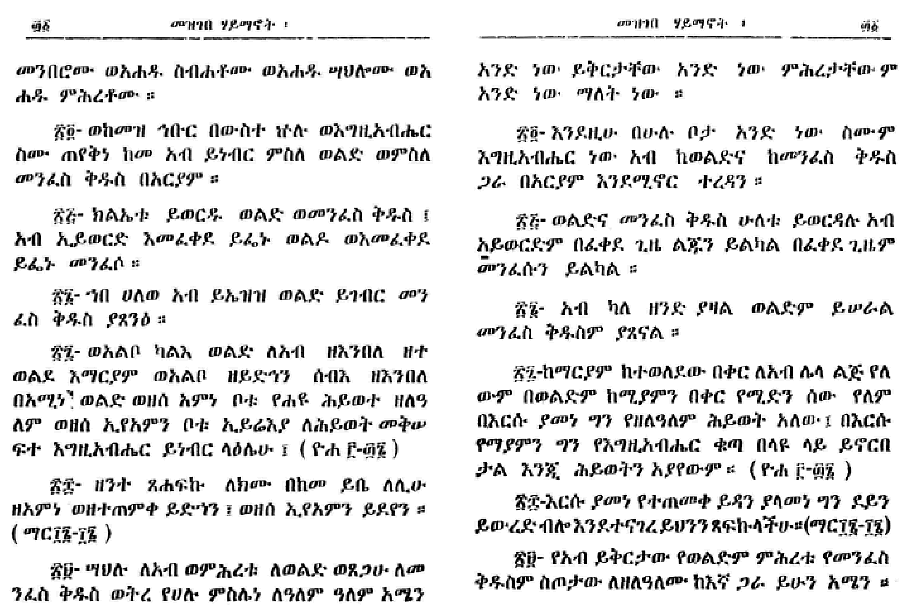 ፴፩ መዝገበ ሃይማኖት ፡
መንበሮሙ ወአሐዱ ስብሐቶሙ ወአሐዱ ሣህሎሙ ወአ
ሐዱ ምሕረቶሙ ።
፳፬- ወከመዝ ኅቡር በውስተ ኵሉ ወእግዚአብሔር
ስሙ ጠየቅነ ከመ አብ ይነብር ምስለ ወልድ ወምስለ
መንፈስ ቅዱስ በአርያም ።
፳፭- ክልኤቱ ይወርዱ ወልድ ወመንፈስ ቅዱስ ፤
አብ ኢይወርድ እመፈቀደ ይፌኑ ወልዶ ወእመፈቀደ
ይፌኑ መንፈሶ ።
፳፮- ኀበ ሀለወ አብ ይኤዝዝ ወልድ ይገብር መን
ፈስ ቅዱስ ያጸንዕ ።
፳፯- ወአልቦ ካልእ ወልድ ለአብ ዘእንበለ ዘተ
ወልደ እማርያም ወአልቦ ዘይድኅን ሰብእ ዘእንበለ
በአሚነ ወልድ ወዘሰ አምነ ቦቱ የሐዩ ሕይወተ ዘለዓ
ለም ወዘሰ ኢየአምን ቦቱ ኢይሬእያ ለሕይወት መቅሠ
ፍተ እግዚአብሔር ይነብር ላዕሌሁ ፤ (ዮሐ ፫-፴፮ )
፳፰- ዘንተ ጸሐፍኩ ለክሙ በከመ ይቤ ለሊሁ
ዘአምነ ወዘተጠምቀ ይድኀን ፤ ወዘሰ ኢየአምን ይደየን ።
( ማር፲፮-፲፮ )
፳፱- ሣህሉ ለአብ ወምሕረቱ ለወልድ ወጸጋሁ ለመ
ንፈስ ቅዱስ ወትረ የሀሉ ምስሌነ ለዓለም ዓለም አሜን
መዝገበ ሃይማኖት ፡ ፴፩
አንድ ነው ይቅርታቸው አንድ ነው ምሕረታቸውም
አንድ ነው ማለት ነው ።
፳፬- እንደዚሁ በሁሉ ቦታ አንድ ነው ስሙም
እግዚአብሔር ነው አብ ከወልድና ከመንፈስ ቅዱስ
ጋራ በአርያም እንደሚኖር ተረዳን ።
፳፭- ወልድና መንፈስ ቅዱስ ሁለቱ ይወርዳሉ አብ
አይወርድም በፈቀደ ጊዜ ልጁን ይልካል በፈቀደ ጊዜም
መንፈሱን ይልካል ።
፳፮- አብ ካለ ዘንድ ያዛል ወልድም ይሠራል
መንፈስ ቅዱስም ያጸናል ።
፳፯-ከማርያም ከተወለደው በቀር ለአብ ሌላ ልጅ የለ
ውም በወልድም ከሚያምን በቀር የሚድን ሰው የለም
በእርሱ ያመነ ግን የዘለዓለም ሕይወት አለው ፤ በእርሱ
የማያምን ግን የእግዚአብሔር ቁጣ በላዩ ላይ ይኖርበ
ታል እንጂ ሕይወትን አያየውም ። (ዮሐ ፫-፴፮ )
፳፰-እርሱ ያመነ የተጠመቀ ይዳን ያላመነ ግን ደይን
ይውረድ ብሎ እንደተናገረ ይህንን ጻፍኩላችሁ።(ማር፲፮-፲፮)
፳፱- የአብ ይቅርታው የወልድም ምሕረቱ የመንፈስ
ቅዱስም ስጦታው ለዘለዓለሙ ከእኛ ጋራ ይሁን አሜን ።